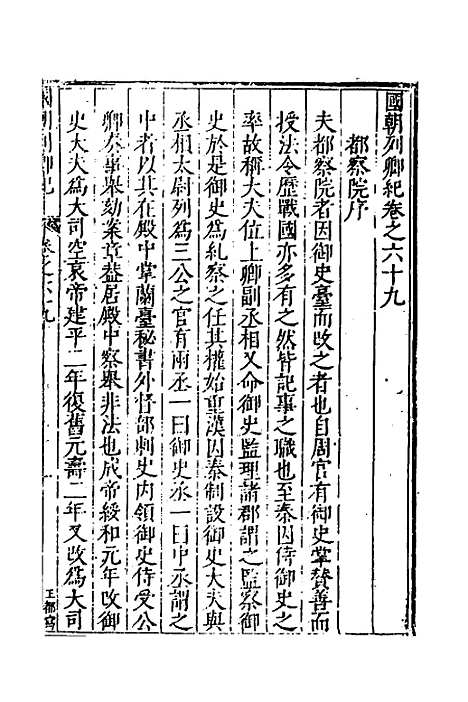 國朝列卿紀卷之六十九
都察院序
夫都察院者因御史臺而改之者也自周官有御史掌贊善而
授法令歷戰國亦多有之然皆記事之職也至秦因侍御史之
率故稱大夫位上卿副丞相又命御史監理諸郡謂之監察御
史於是御史爲糾察之任其權始重漢因秦制設御史大夫與
丞相太尉列爲三公之官有兩丞一曰御史丞一曰中丞謂之
中者以其在殿中掌蘭臺秘書外督部刺史內領御史侍受公
卿奏事舉劾案章葢居殿中察舉非法也成帝綏和元年改御
史大夫爲大司空哀帝建平二年復舊元壽二年又改爲大司
國朝列卿紀
卷之六十九
王都寫